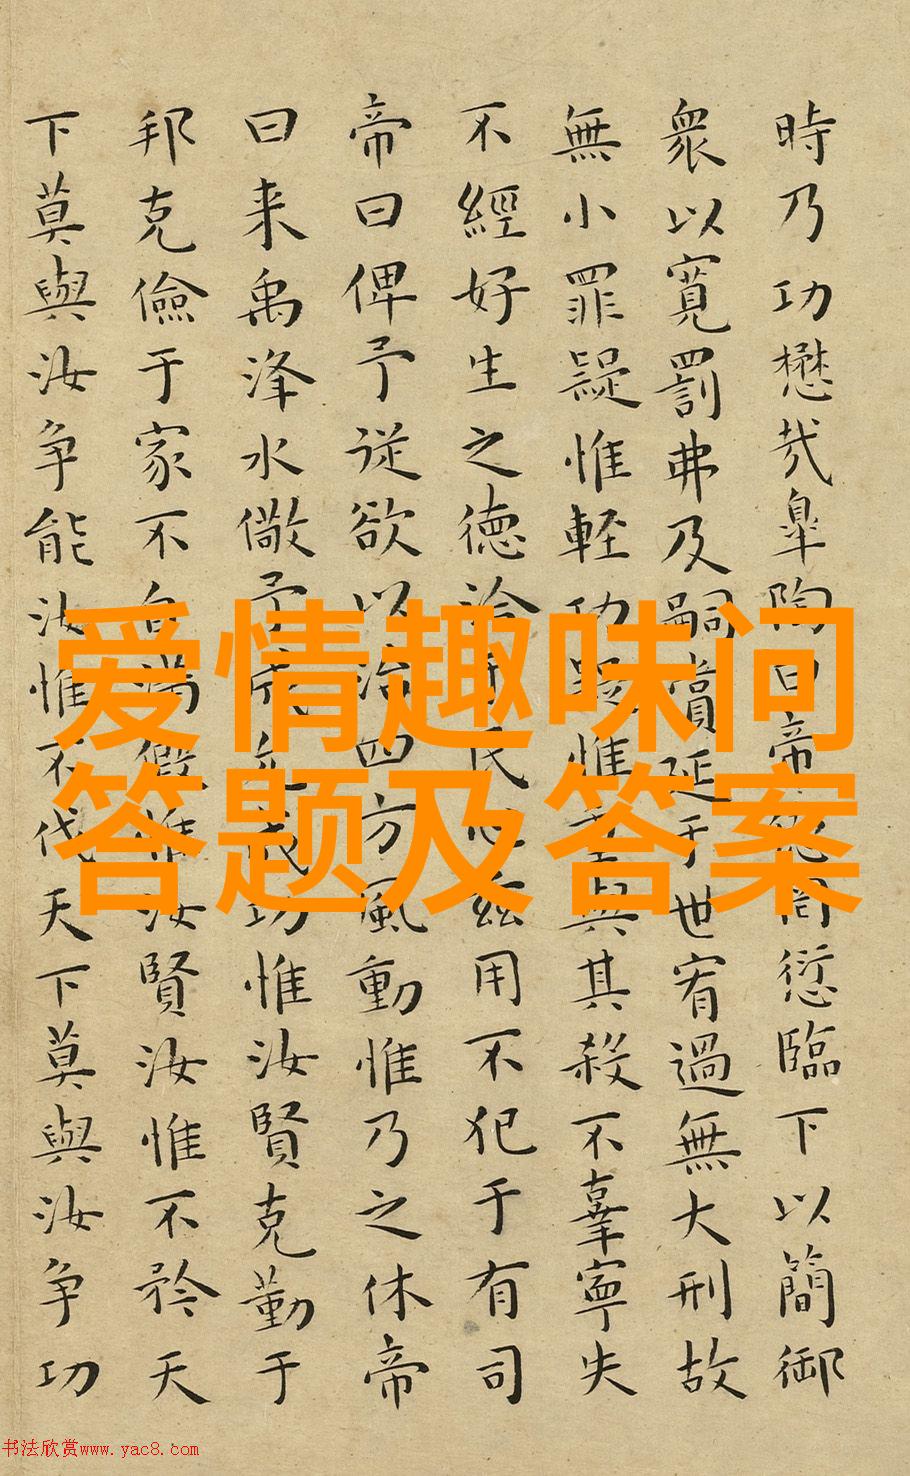 時乃功懋哉皐陶曰帝德罔愆臨下以簡御
衆以寬罰弗及嗣賞延于世宥過無大刑故
無小罪疑惟輕功疑惟重與其殺不辜寧失
不經好生之德洽于民心茲用不犯于有司
帝曰俾予從欲以治四方風動惟乃之休帝
曰来禹洚水儆予成允成功惟汝賢克勤于
邦克儉于家不自滿假惟汝賢汝惟不矜天
下莫與汝争能汝惟不伐天下莫與汝争功
爱情趣味问
答题及答案
书法欣赏www.yac8.com